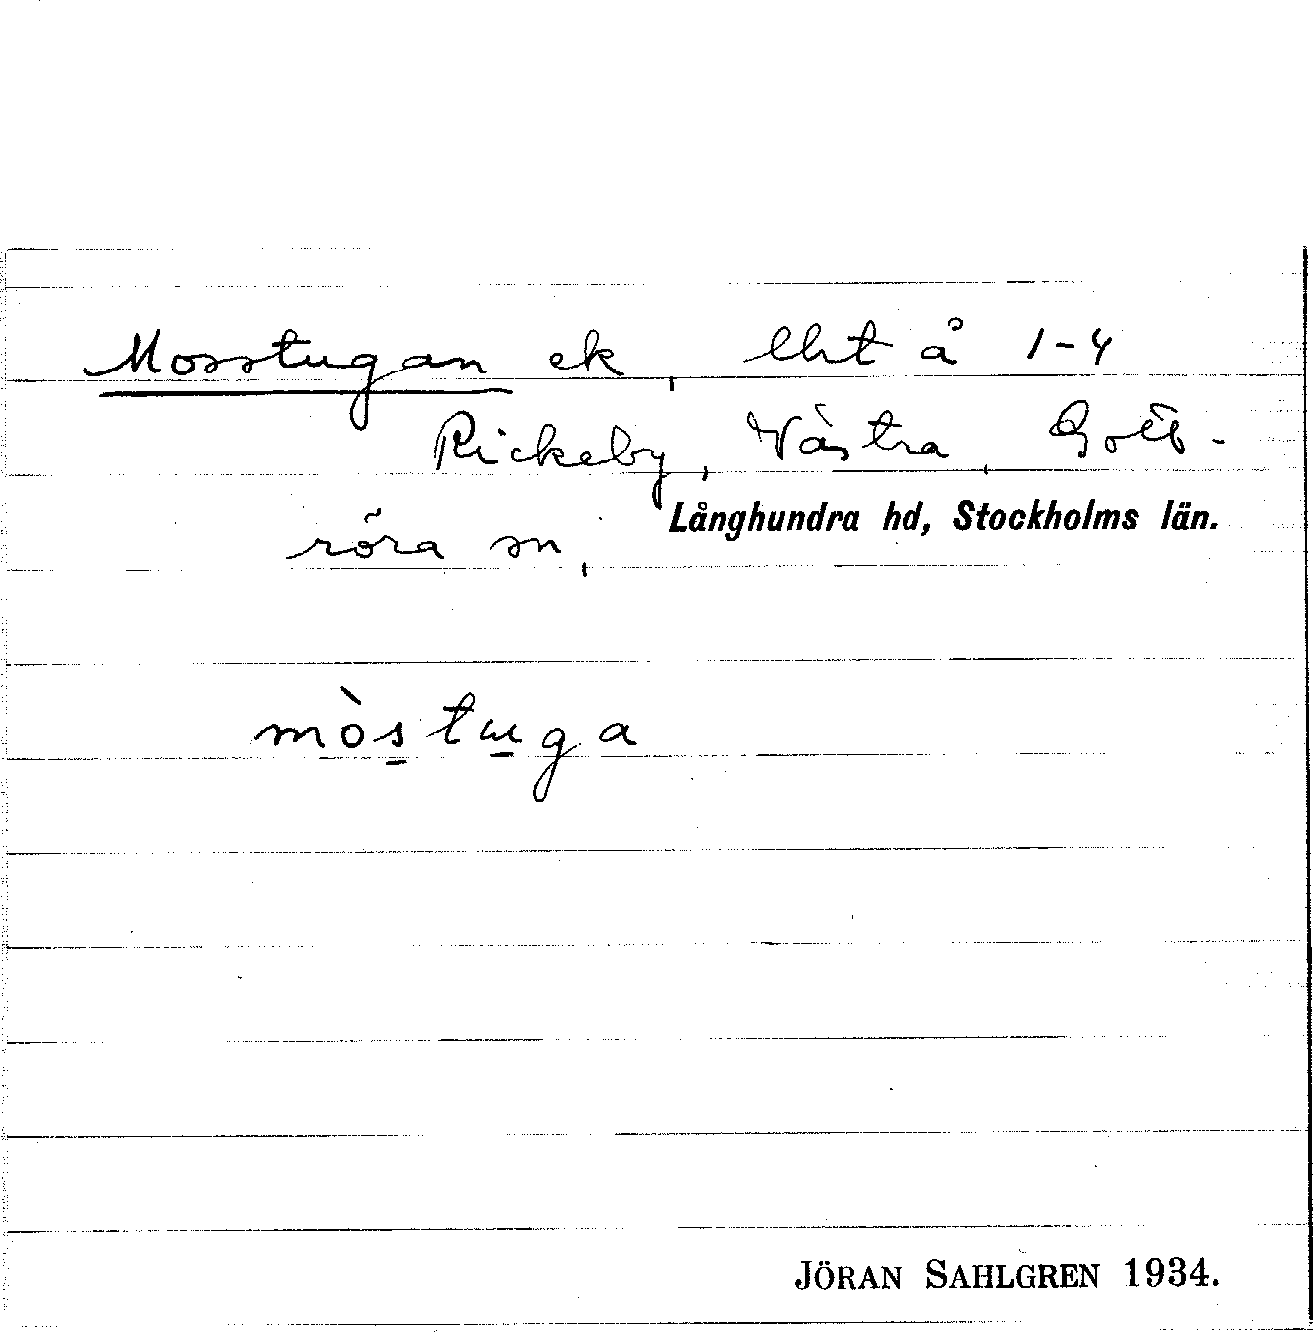 Mosstugan ek, lht å 1-4
Rickeby, Västra, Gott-
röra sn,
Långhundra hd, Stockholms län.
mòstuga
JÖRAN SAHLGREN 1934.